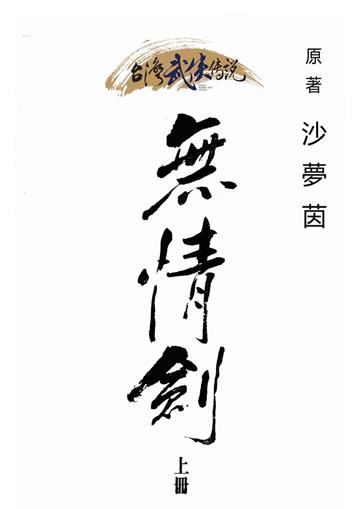 台灣武俠傳說
原著 沙夢茵
無情劍
上冊